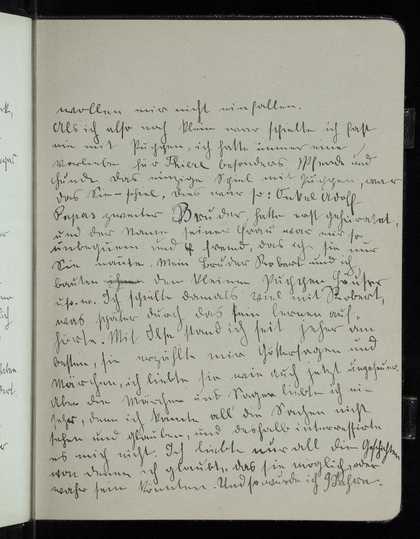 wollen mir nicht einfallen.
Als ich also noch klein war spielte ich fast
nie mit Puppen, ich hatte immer eine
Vorliebe für Thiere besonders Pferde und
Hunde das einzige Spiel mit Puppen, war
das Sie-spiel, dies war so: Onkel Adolf
Papas zweiter Bruder, hatte erst geheiratet,
und der Name seiner Frau war mir so
unbequem und fremd, das ich sie nur
Sie nannte. Mein Bruder Robert und ich
bauten den kleinen Puppen Häuser
u.s.w. Ich spielte damals viel mit Robert,
was später durch das lernen auf-
hörte. Mit Ilse stand ich seit jeher am
besten, sie erzählte mir Göttersagen und
Märchen, ich liebte sie wie auch jetzt ungeheuer.
Aber die Märchen uns Sagen liebte ich nie
sehr, denn ich konnte all die Sachen nicht
sehen und glauben, und deshalb interressierte
es mich nicht. Ich liebte nur all die Geschichten
von denen ich glaubte, das sie möglich oder
wahr sein könnten. Und so wurde ich 9 Jahre.